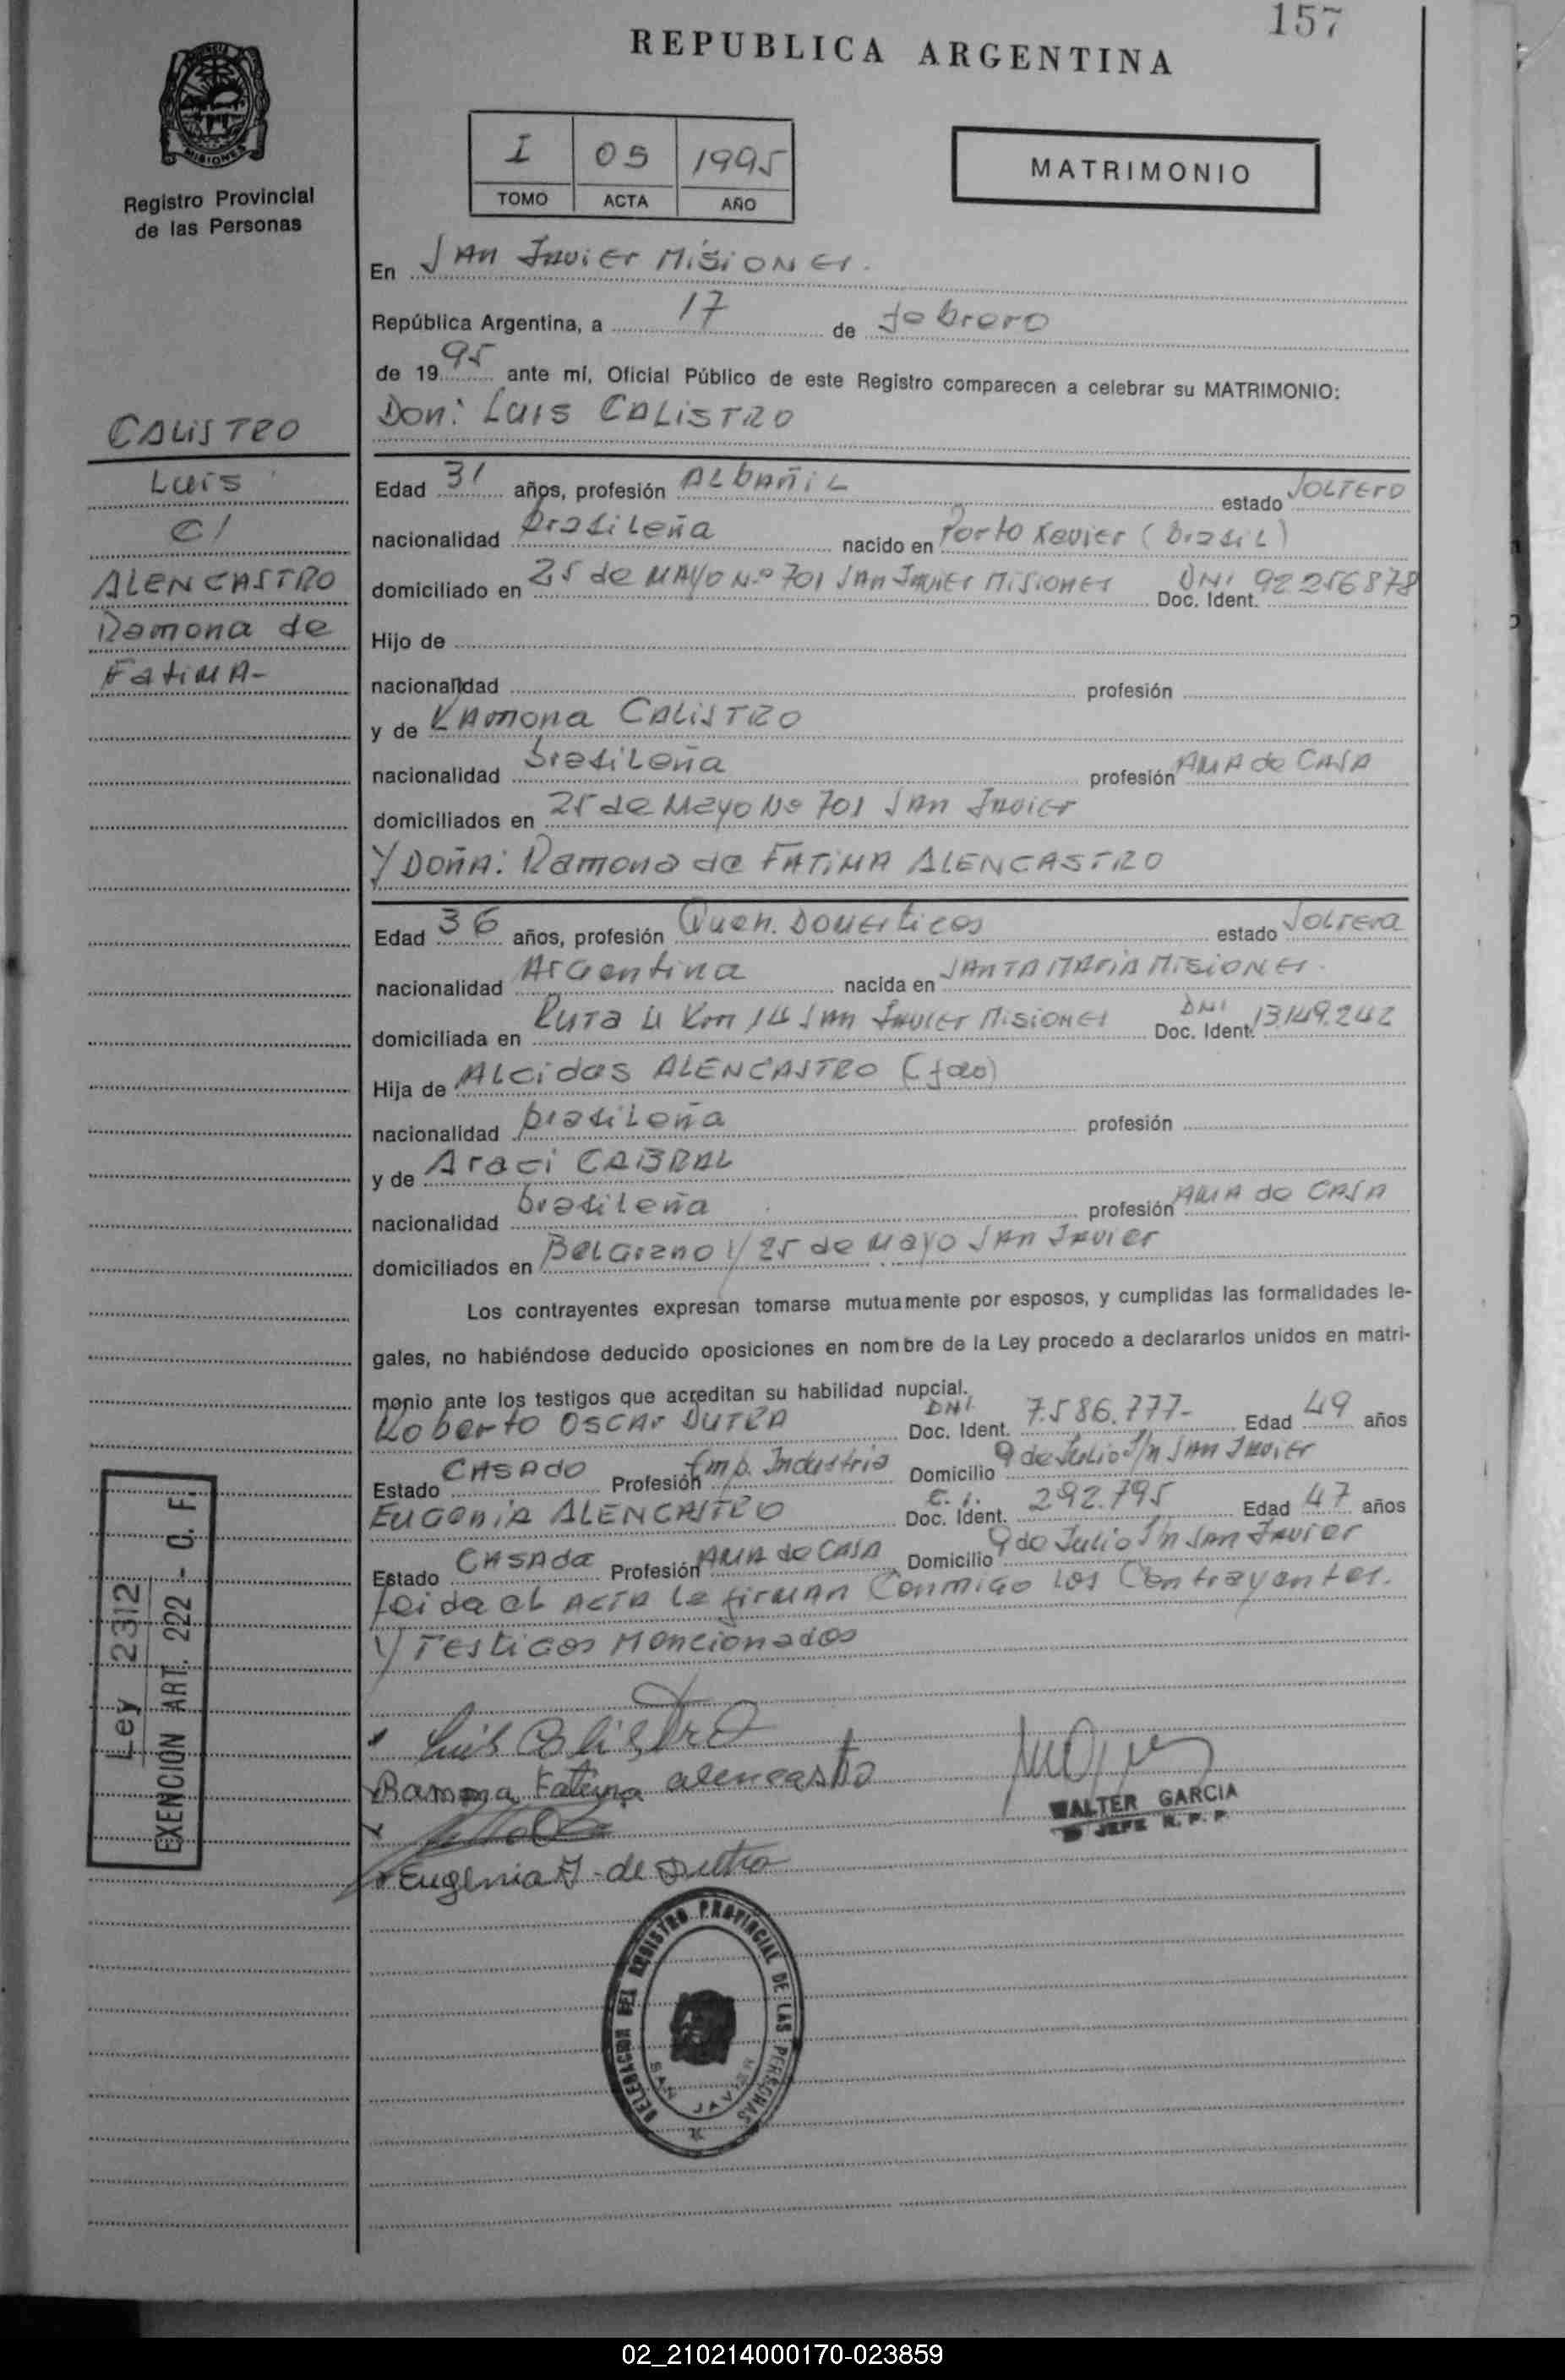 157
REPUBLICA ARGENTINA
MISIONES
Registro Provincial
de las Personas
I 05 1995
TOMO ACTA AÑO
MATRIMONIO
En San Javier Misiones.
República Argentina, a 17 de febrero
de 1995 ante mí, Oficial Público de este Registro comparecen a celebrar su MATRIMONIO:
Don: Luis CALISTRO
CALISTRO
Luis
C/
ALENCASTRO
Ramona de
Fatima-
Edad 31 años, profesión Albañil estado Soltero
nacionalidad Brasileña nacido en Porto Xavier (Brasil)
domiciliado en 25 de Mayo N.º 701 San Javier Misiones Doc. Ident. DNI 92.256878
Hijo de
nacionalidad profesión
y de Ramona CALISTRO
nacionalidad brasileña profesión Ama de Casa
domiciliados en 25 de Mayo Nº 701 San Javier
Y Doña: Ramona de FATIMA ALENCASTRO
Edad 36 años, profesión Queh. Domesticos estado Soltera
nacionalidad Argentina nacida en Santa Maria Misiones.
domiciliada en Ruta 4 Km 14 San Javier Misiones Doc. Ident. DNI 13.149.242
Hija de Alcidas ALENCASTRO (fdo)
nacionalidad brasileña profesión
y de Araci CABRAL
nacionalidad brasileña profesión Ama de Casa
domiciliados en Belgrano y 25 de Mayo San Javier
Los contrayentes expresan tomarse mutuamente por esposos, y cumplidas las formalidades le-
gales, no habiéndose deducido oposiciones en nombre de la Ley procedo a declararlos unidos en matri-
monio ante los testigos que acreditan su habilidad nupcial.
Roberto Oscar DUTRA Doc. Ident. DNI. 7.586.777- Edad 49 años
Estado Casado Profesión Emp. Industria Domicilio 9 de Julio S/n San Javier
Eugenia ALENCASTRO Doc. Ident. C. I. 292.795 Edad 47 años
Estado Casada Profesión Ama de Casa Domicilio 9 de Julio S/n San Javier
Leida el Acta la firman Conmigo los Contrayentes.
y Testigos Mencionados
Ley 2312
EXENCION ART. 222 - C. F.
Luis Calistro
Ramona Fatima alencastro
Eugenia A. de Dutra
WALTER GARCIA
JEFE R. P. P.
DELEGACION DEL REGISTRO PROVINCIAL DE LAS PERSONAS
SAN JAVIER
02_210214000170-023859